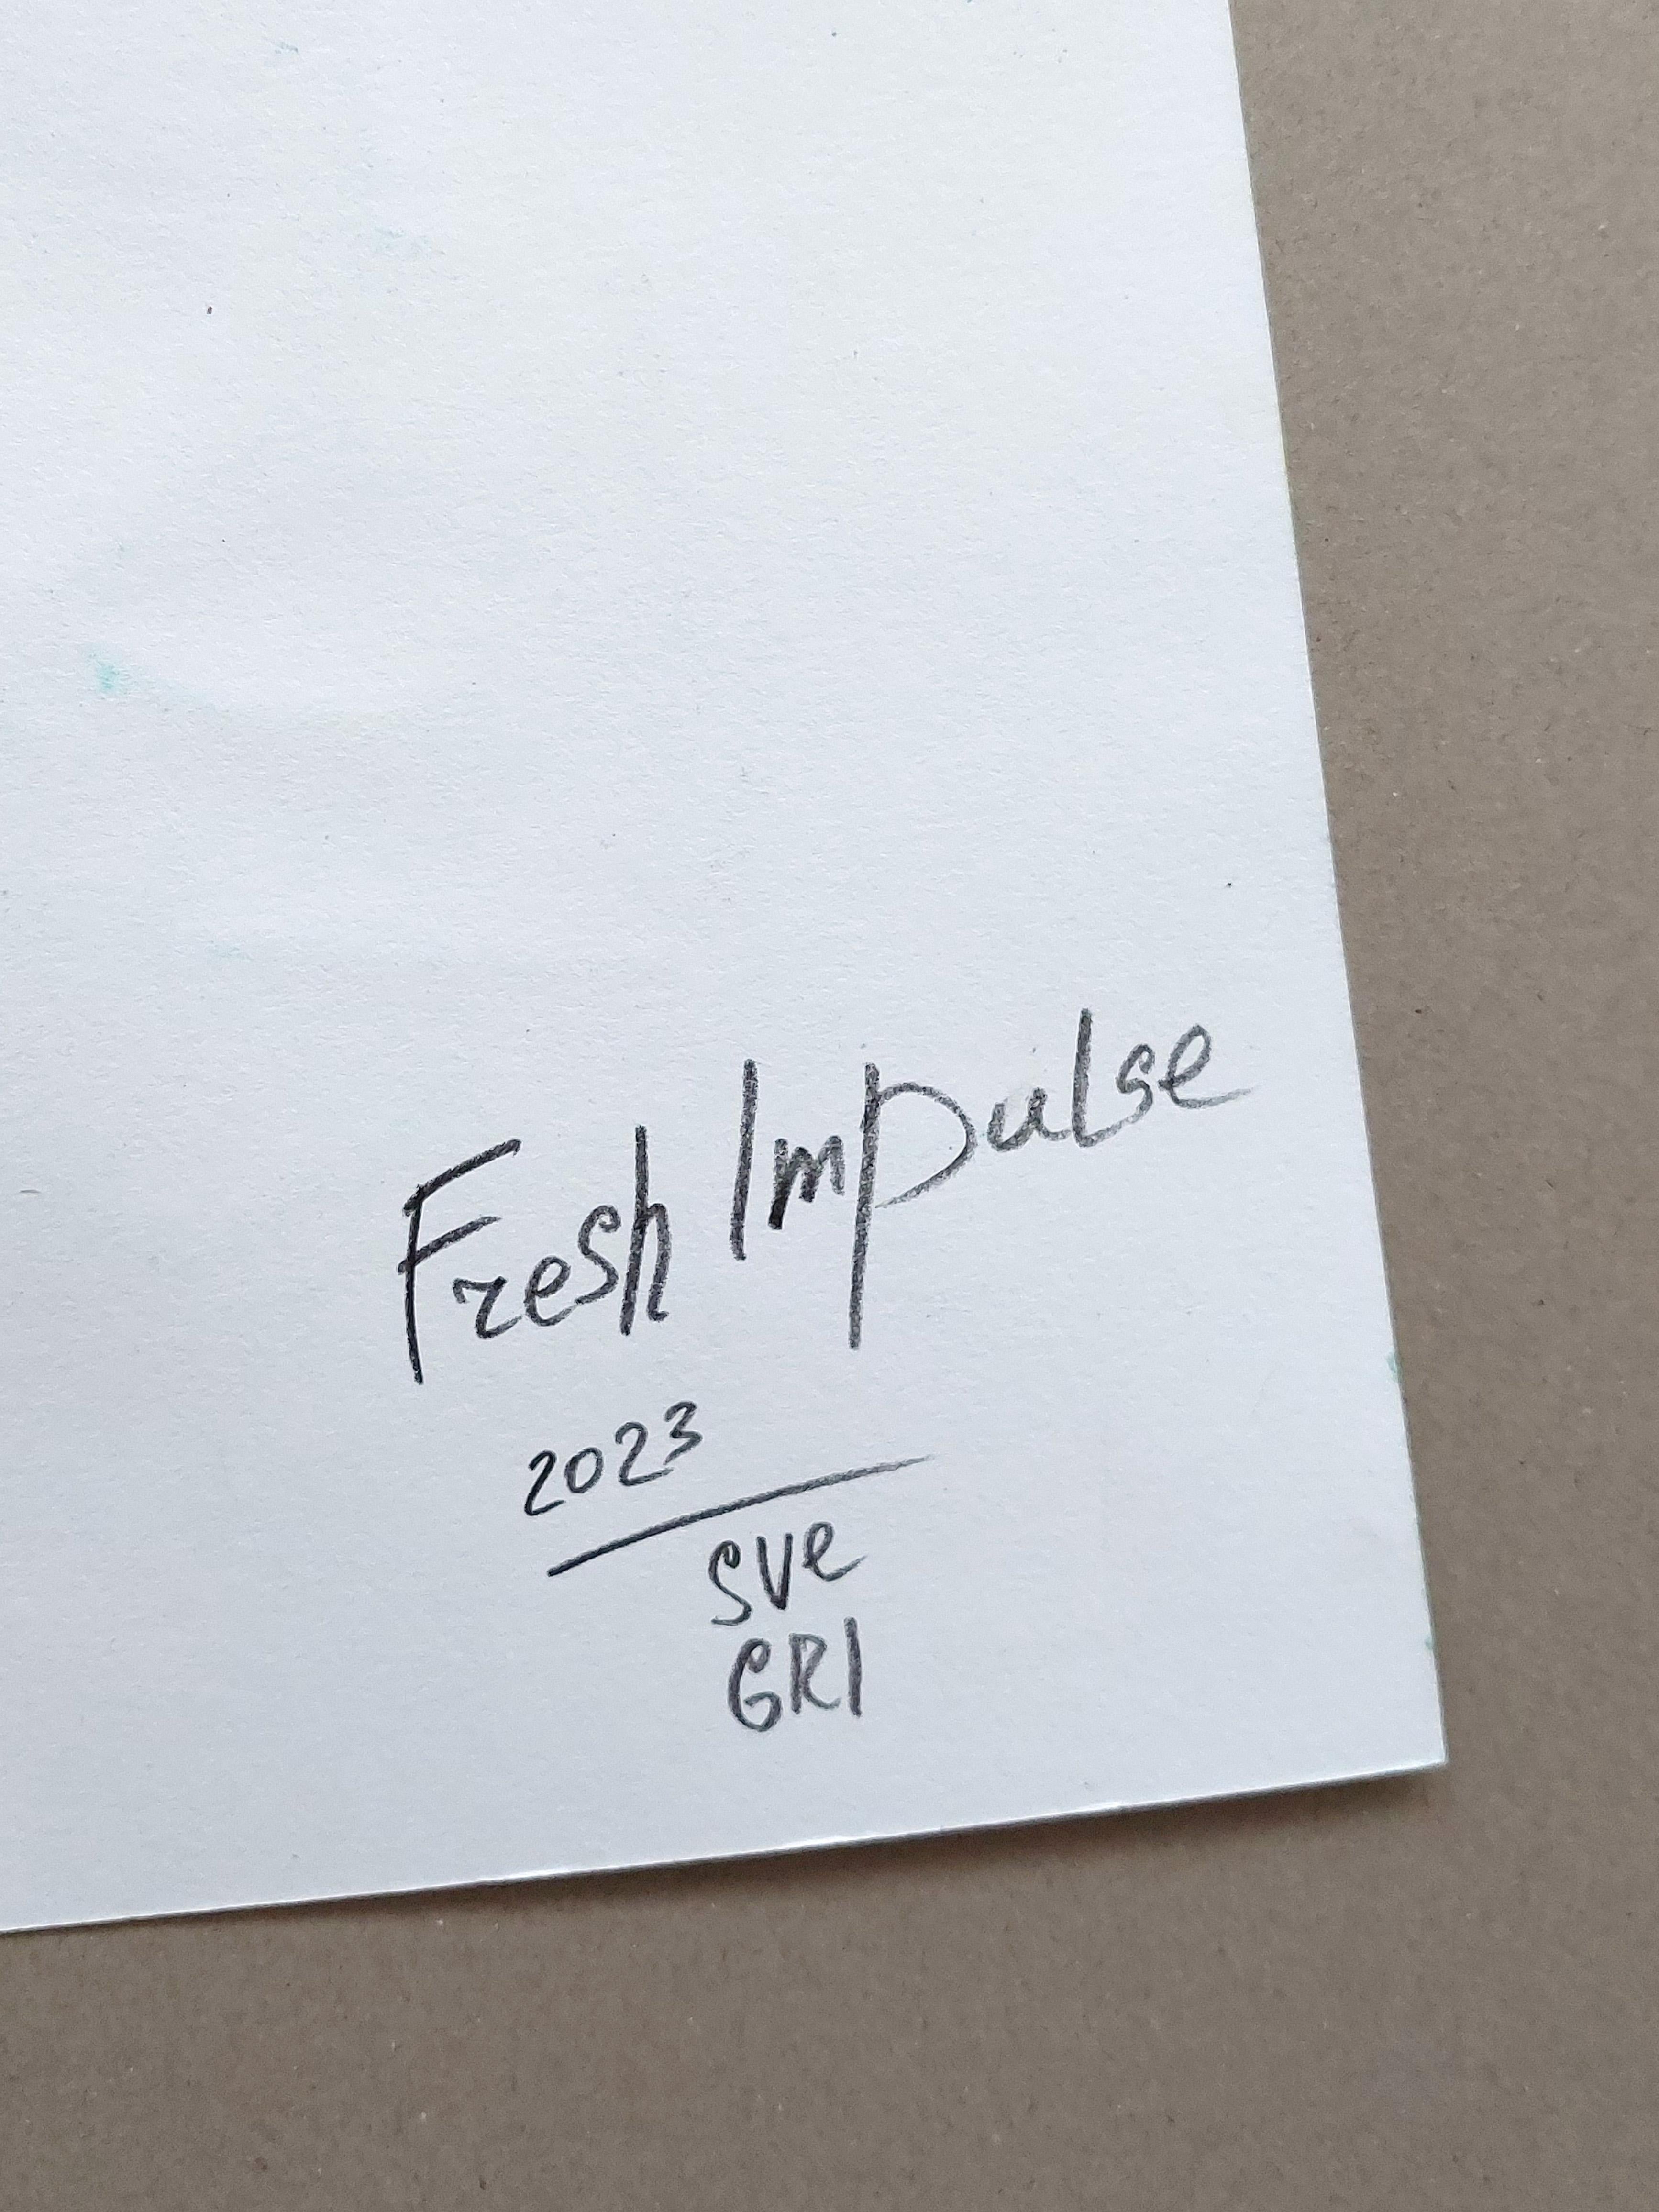 Fresh Impulse
2023
SVe
GRI